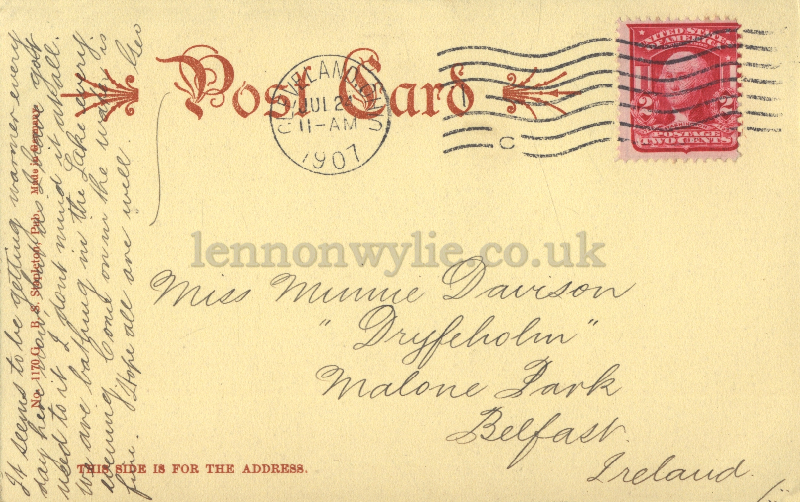 Post Card
UNITED STATES
OF AMERICA
2 2
POSTAGE
TWO CENTS
CLEVELAND, OHIO
JUL 2
11-AM
1907
C
lennonwylie.co.uk
Miss Minnie Davison
"Dryfeholm"
Malone Park
Belfast.
Ireland.
THIS SIDE IS FOR THE ADDRESS.
No. 1170 G. B. S. Stapleton Pub. Made in Germany
It seems to be getting warmer every
day here now, but as I have got
used to it I dont mind it at all.
We are bathing in the Lake every
evening. Come on in the water is
fine. Hope all are well. Geo